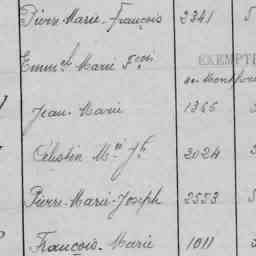 Pierre-Marie-François 2341 5
Emm.el Marie F.çois EXEMPT
Jean-Marie 1366 3
Célestin M.ie J.h 3024 3
Pierre-Marie-Joseph 2553
François-Marie 1011 3